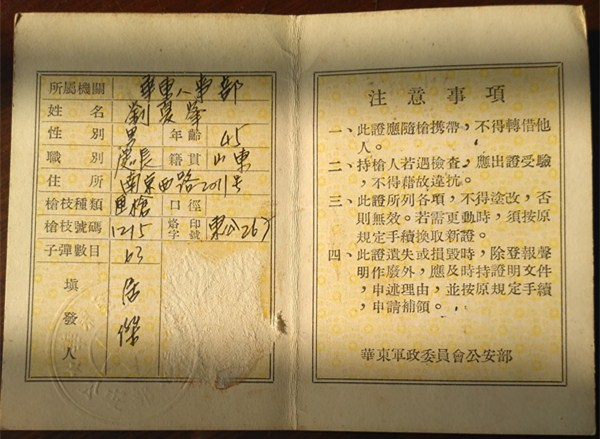 所屬機關 華東人事部
姓名 劉夏峰
性別 男 年齡 45
職別 處長 籍貫 山東
住所 南京西路2011号
槍枝種類 口徑
槍枝號碼 1215 烙印字號
子彈數目 63
填發人
注意事項
一、此證應隨槍携帶，不得轉借他
人。
二、持槍人若遇檢查，應出證受驗
，不得藉故違抗。
三、此證所列各項，不得塗改，否
則無效。若需更動時，須按原
規定手續換取新證。
四、此證遺失或損毀時，除登報聲
明作廢外，應及時持證明文件
，申述理由，並按原規定手續
，申請補領。
華東軍政委員會公安部